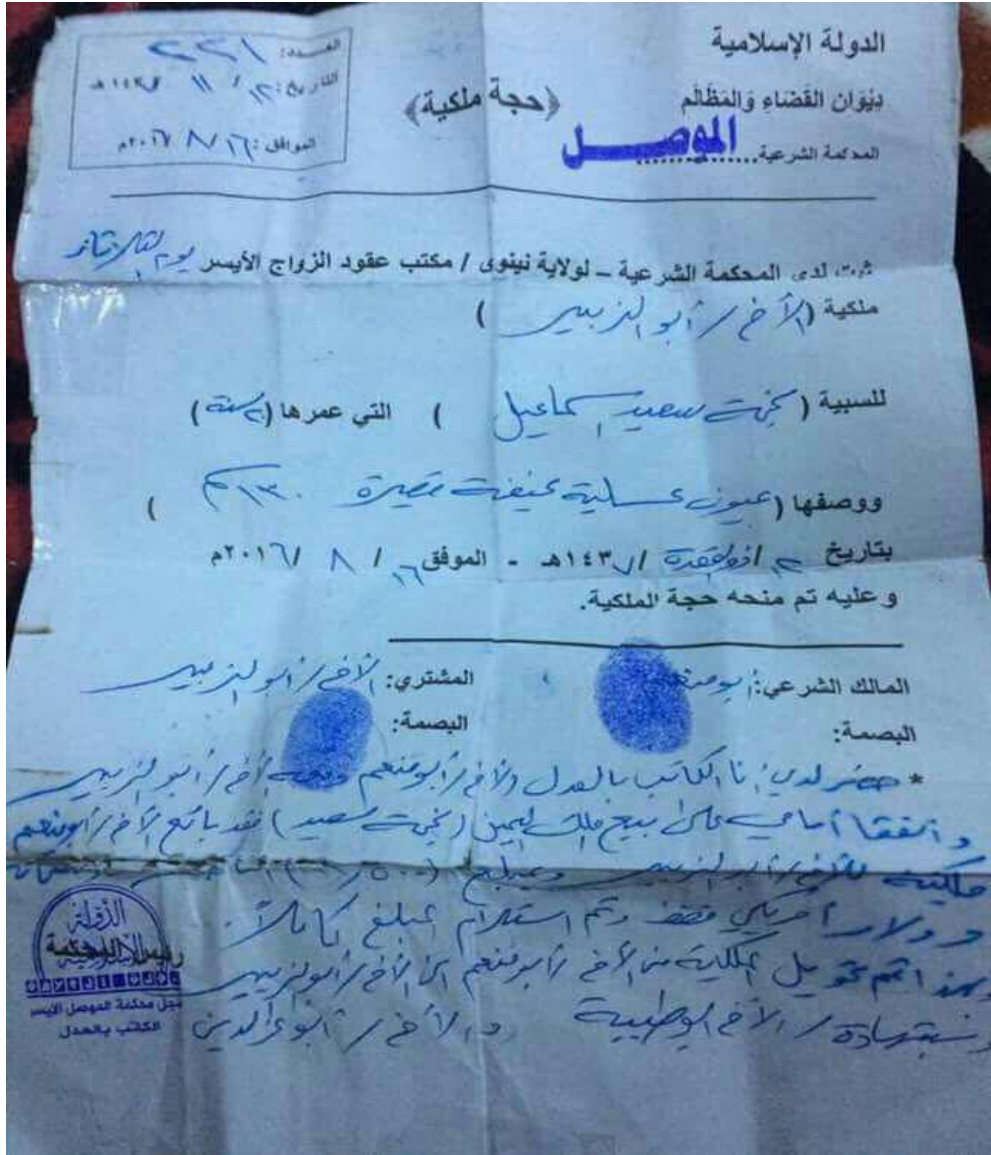 الدولة الإسلامية
ديْوَان القَضَاءِ وَالمَظَالم
المحكمة الشرعية الموصل
﴿حجة ملكية﴾
العدد: ٢٣١
التاريخ: ١٢ / ١١ / ١٤٣٧هـ
الموافق: ١٦ / ٨ / ٢٠١٦م
ثبت لدى المحكمة الشرعية – لولاية نينوى / مكتب عقود الزواج الأيسر يوم
ملكية (الأخ / أبو الزبير )
للسبية ( سعيد ) التي عمرها ( سنة )
ووصفها (عيون عسلية قصيرة ١٣٠سم )
بتاريخ / ذو القعدة / ١٤٣٧هـ - الموفق ١٦ / ٨ / ٢٠١٦م
وعليه تم منحه حجة الملكية.
المالك الشرعي: أبو منعم
البصمة:
المشتري: الأخ / أبو الزبير
البصمة:
* حضر لدي أنا الكاتب بالعدل الأخ / أبو منعم ومعه الأخ / أبو الزبير
واتفقا أمامي على بيع ملك اليمين ( سعيد ) فقد باع الأخ / أبو منعم
ملكيته للأخ / أبو الزبير وبمبلغ
دولار أمريكي فقط وتم استلام المبلغ كاملاً.
وبهذا تم تحويل الملكية من الأخ / أبو منعم الى الأخ / أبو الزبير
وبشهادة / الأخ والأخ / أبو عزالدين
الدولة الإسلامية
رئيس المحكمة
محكمة الموصل الأيسر
الكاتب بالعدل